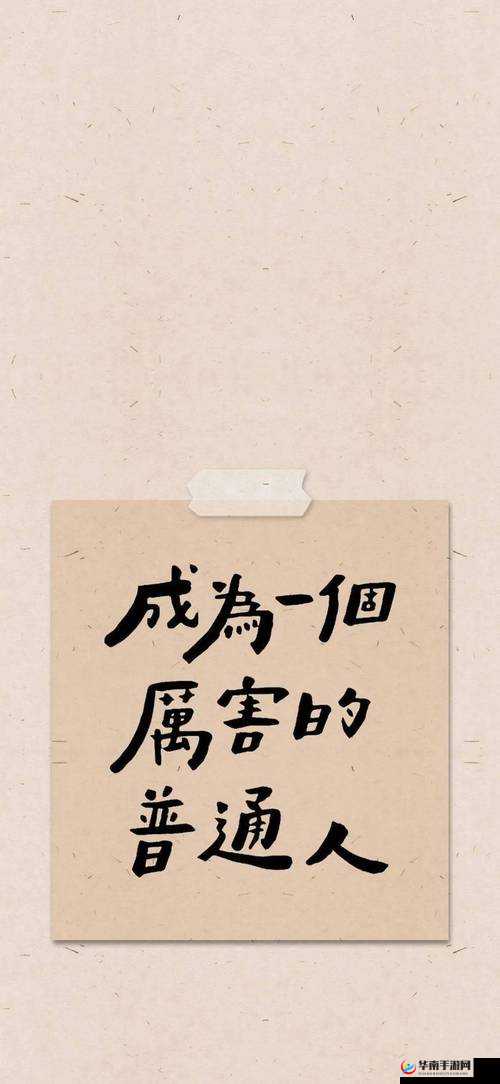 成為一個
厲害的
普通人
华南手游网